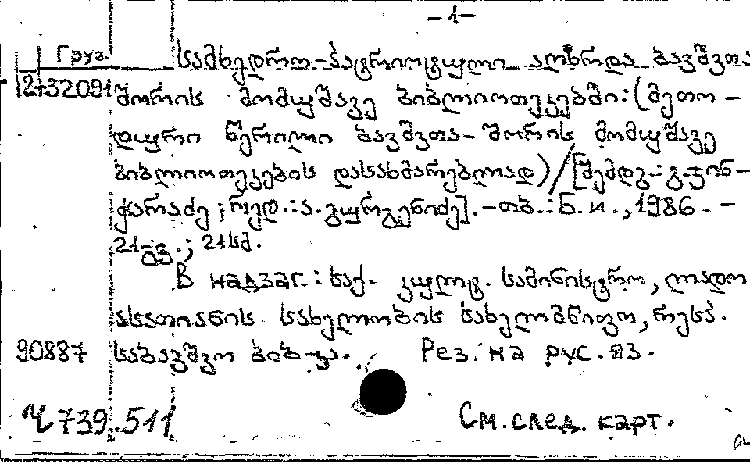 -1-
Груз. სამხედრო-პატრიოტული აღზრდა ბავშვთა
2-32091 შორის მომუშავე ბიბლიოთეკებში: (მეთო-
დური წერილი ბავშვთა-შორის მომუშავე
ბიბლიოთეკების დასახმარებლად) / [შემდგ.: გ. ჯინ-
ჭარაძე; რედ.: ა. გურგენიძე]. - თბ.: Б. и., 1986. -
21 გვ.; 21 სმ.
В надзаг.: საქ. კულტ. სამინისტრო, ლადო
ასათიანის სახელობის სახელმწიფო, რესპ.
90887 საბავშვო ბიბ-კა. Рез. на рус. яз.
Ч 739.511 См. след. карт.